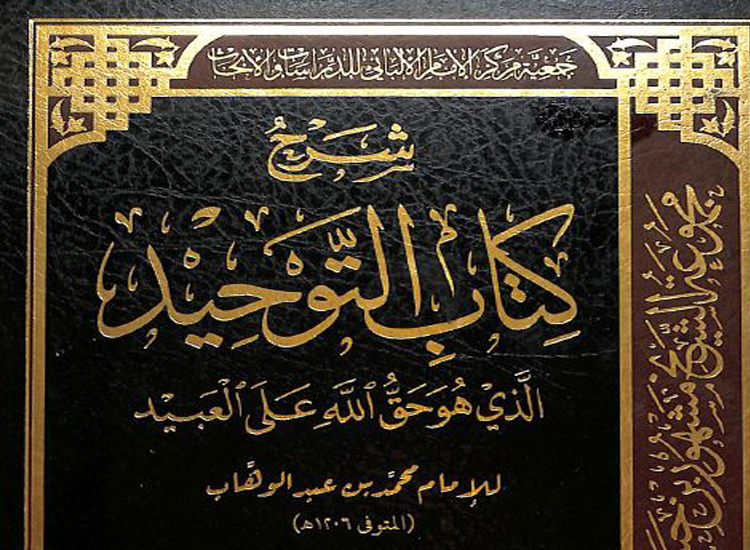 جمعية مركز الإمام الألباني للدراسات والأبحاث
شرح
كتاب التوحيد
الَّذِيْ هُوَ حَقُّ ٱللَّهِ عَلَى ٱلْعَبِيْد
للإمام محمد بن عبد الوهاب
(المتوفى ١٢٠٦ه‍)
مجموعة الشيخ مشهور بن